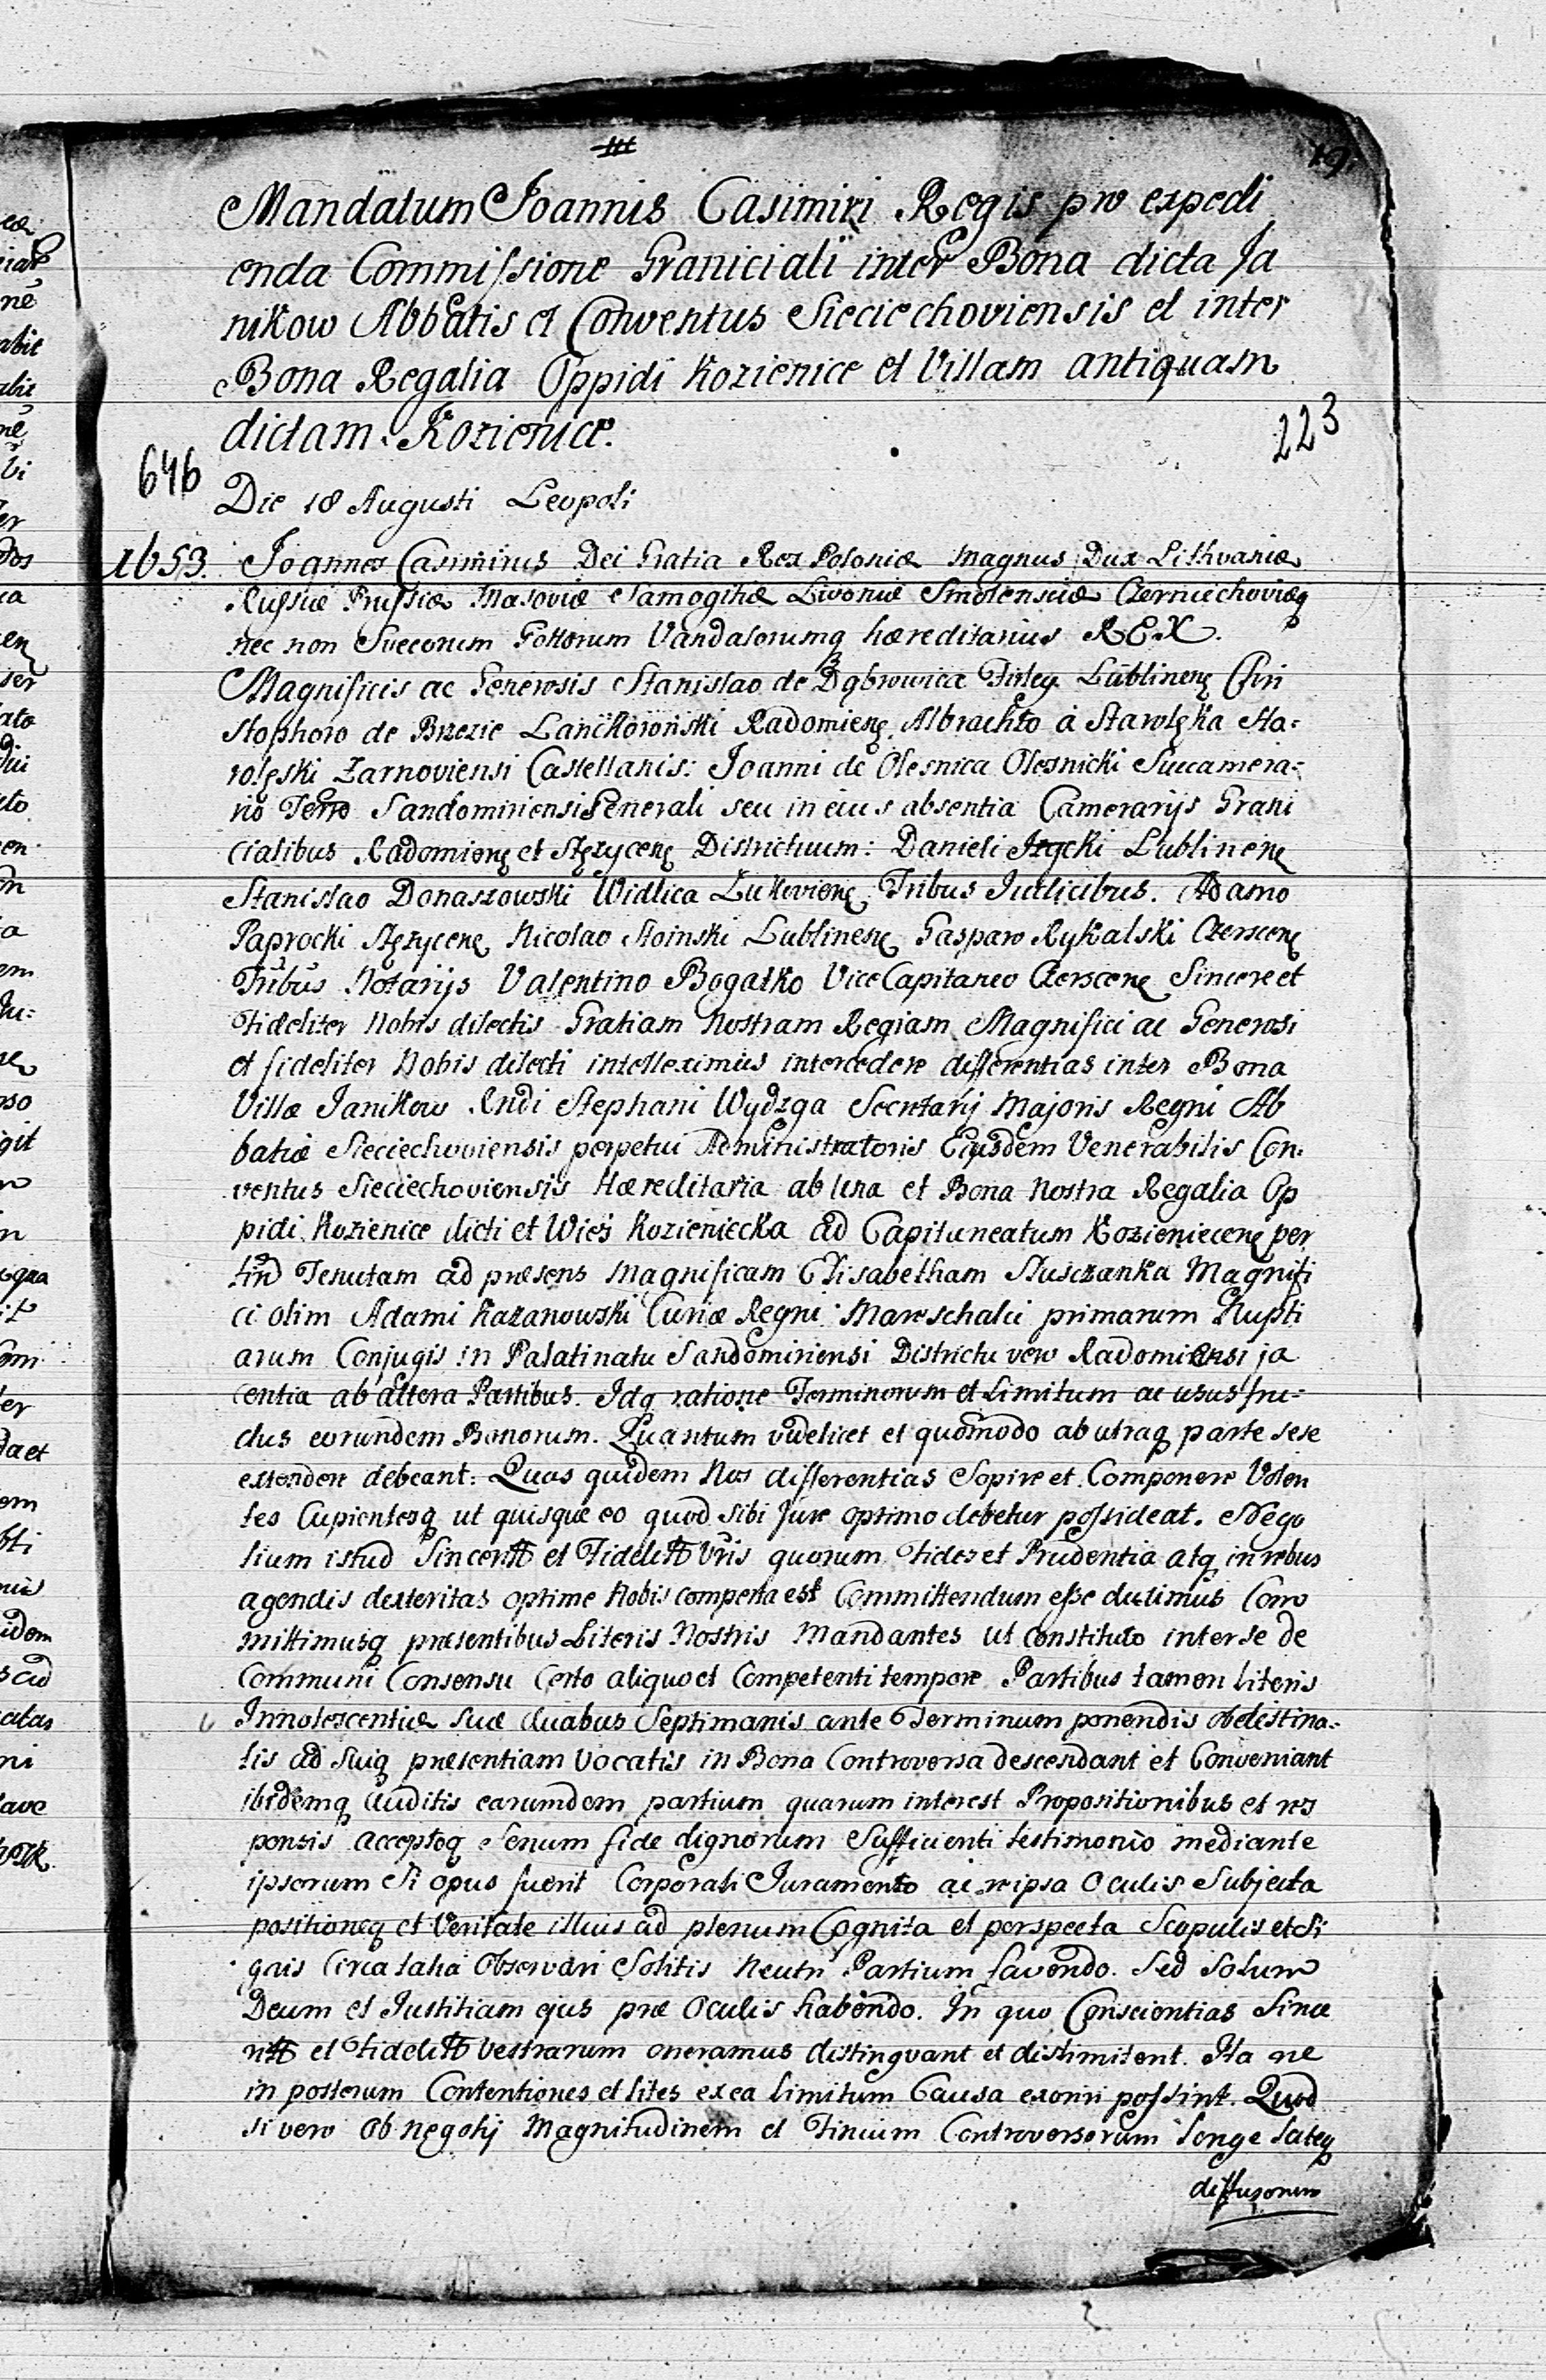 19.
Mandatum Joannis Casimiri Regis pro expedi
enda Commissione Graniciali inter Bona dicta Ja
nikow Abbatis et Conventus Sieciechoviensis et inter
Bona Regalia Oppidi Kozienice et Villam antiquam
dictam Kozienice.
223
646
Die 18 Augusti Leopoli
1653. Joannes Casimirus Dei Gratia Rex Poloniæ Magnus Dux Lithvaniæ
Russiæ Prussiæ Masoviæ Samogitiæ Livoniæ Smolensciæ Czerniechoviæq
nec non Suecorum Gottorum Vandalorumq hæreditarius REX.
Magnificis ac Generosis Stanislao de Dąbrowica Firley Lublinenȩ Chri
stophoro de Brzezie Lanckoroński Radomienȩ Albrachto à Starolęka Sta=
rolęski Zarnoviensi Castellanis: Joanni de Olesnica Olesnicki Succamera=
rio Terro Sandomiriensi Generali seu in eius absentia Camerarijs Grani
cialibus Radomienȩ et Stężycenȩ Districtuum: Danieli Lublinenȩ
Stanislao Donaszowski Widlica Lukovienȩ Tribus Iudicibus. Adamo
Paprocki Stężycenȩ Nicolao Stoinski Lublinenȩ Gasparo Rykalski Czerscenȩ
Tribus Notarijs Valentino Bogatko ViceCapitaneo Czerscenȩ Sincere et
Fideliter Nobis dilectis Gratiam Nostram Regiam Magnifici ac Generosi
et fideliter Nobis dilecti intelleximus intercedere differentias inter Bona
Villæ Janikow Rndi Stephani Wydzga Secretarij Majoris Regni Ab
batiæ Sieciechoviensis perpetui Administratoris Ejusdem Venerabilis Con:
ventus Sieciechoviensis Hæreditaria ab una et Bona Nostra Regalia Op
pidi Kozienice dicti et Wieś Kozieniecka ad Capitaneatum Kozieniecenȩ per
tind Tenutam ad præsens Magnificam Elisabetham Słuszczanka Magnifi
ci olim Adami Kazanowski Curiæ Regni Mareschalci primarum Nupti
arum Conjugis in Palatinatu Sandomiriensi Districtu vero Radomiensi ja
centia ab altera Partibus. Idq ratione Terminorum et Limitum ac ususfru=
ctus eorundem Bonorum. Quantum videlicet et quomodo ab utraq parte sese
extendere debeant: Quas quidem Nos differentias Sopire et Componere Volen
tes Cupientesq ut quisque eo quod sibi jure optimo debetur possideat. Nego
tium istud Sincertt et Fidelitt Vris quorum Fides et Prudentia atq in rebus
agendis dexteritas optime Nobis comperta est Committendum esse duximus Com
mittimusq præsentibus Literis Nostris Mandantes ut constituto inter se de
Communi Consensu Certo aliquo et Competenti tempore Partibus tamen literis
Innotescentiæ suæ duabus Septimanis ante Terminum ponendis destina:
tis ad suiq præsentiam vocatis in Bona Controversa descendant et Conveniant
ibidemq auditis earumdem partium quarum interest Propositionibus et res
ponsis acceptoq Senum fide dignorum Sufficienti testimonio mediante
ipsorum Si opus fuerit Corporali Iuramento ac reipsa Oculis Subjecta
positioneq et Veritate illius ad plenum Cognita et perspecta Scopulis et Si
gnis Circa talia Observari Solitis Neutri Partium favendo. Sed Solum
Deum et Justitiam ejus præ Oculis habendo. In quo Conscientias Since
ritt et Fidelitt Vestrarum oneramus distinguant et disslimitent. Ita ne
in posterum Contentiones et lites ex ea limitum Causa exoriri possint. Quod
si vero ob negotij Magnitudinem et Finium Controversorum longe lateq
diffusorum